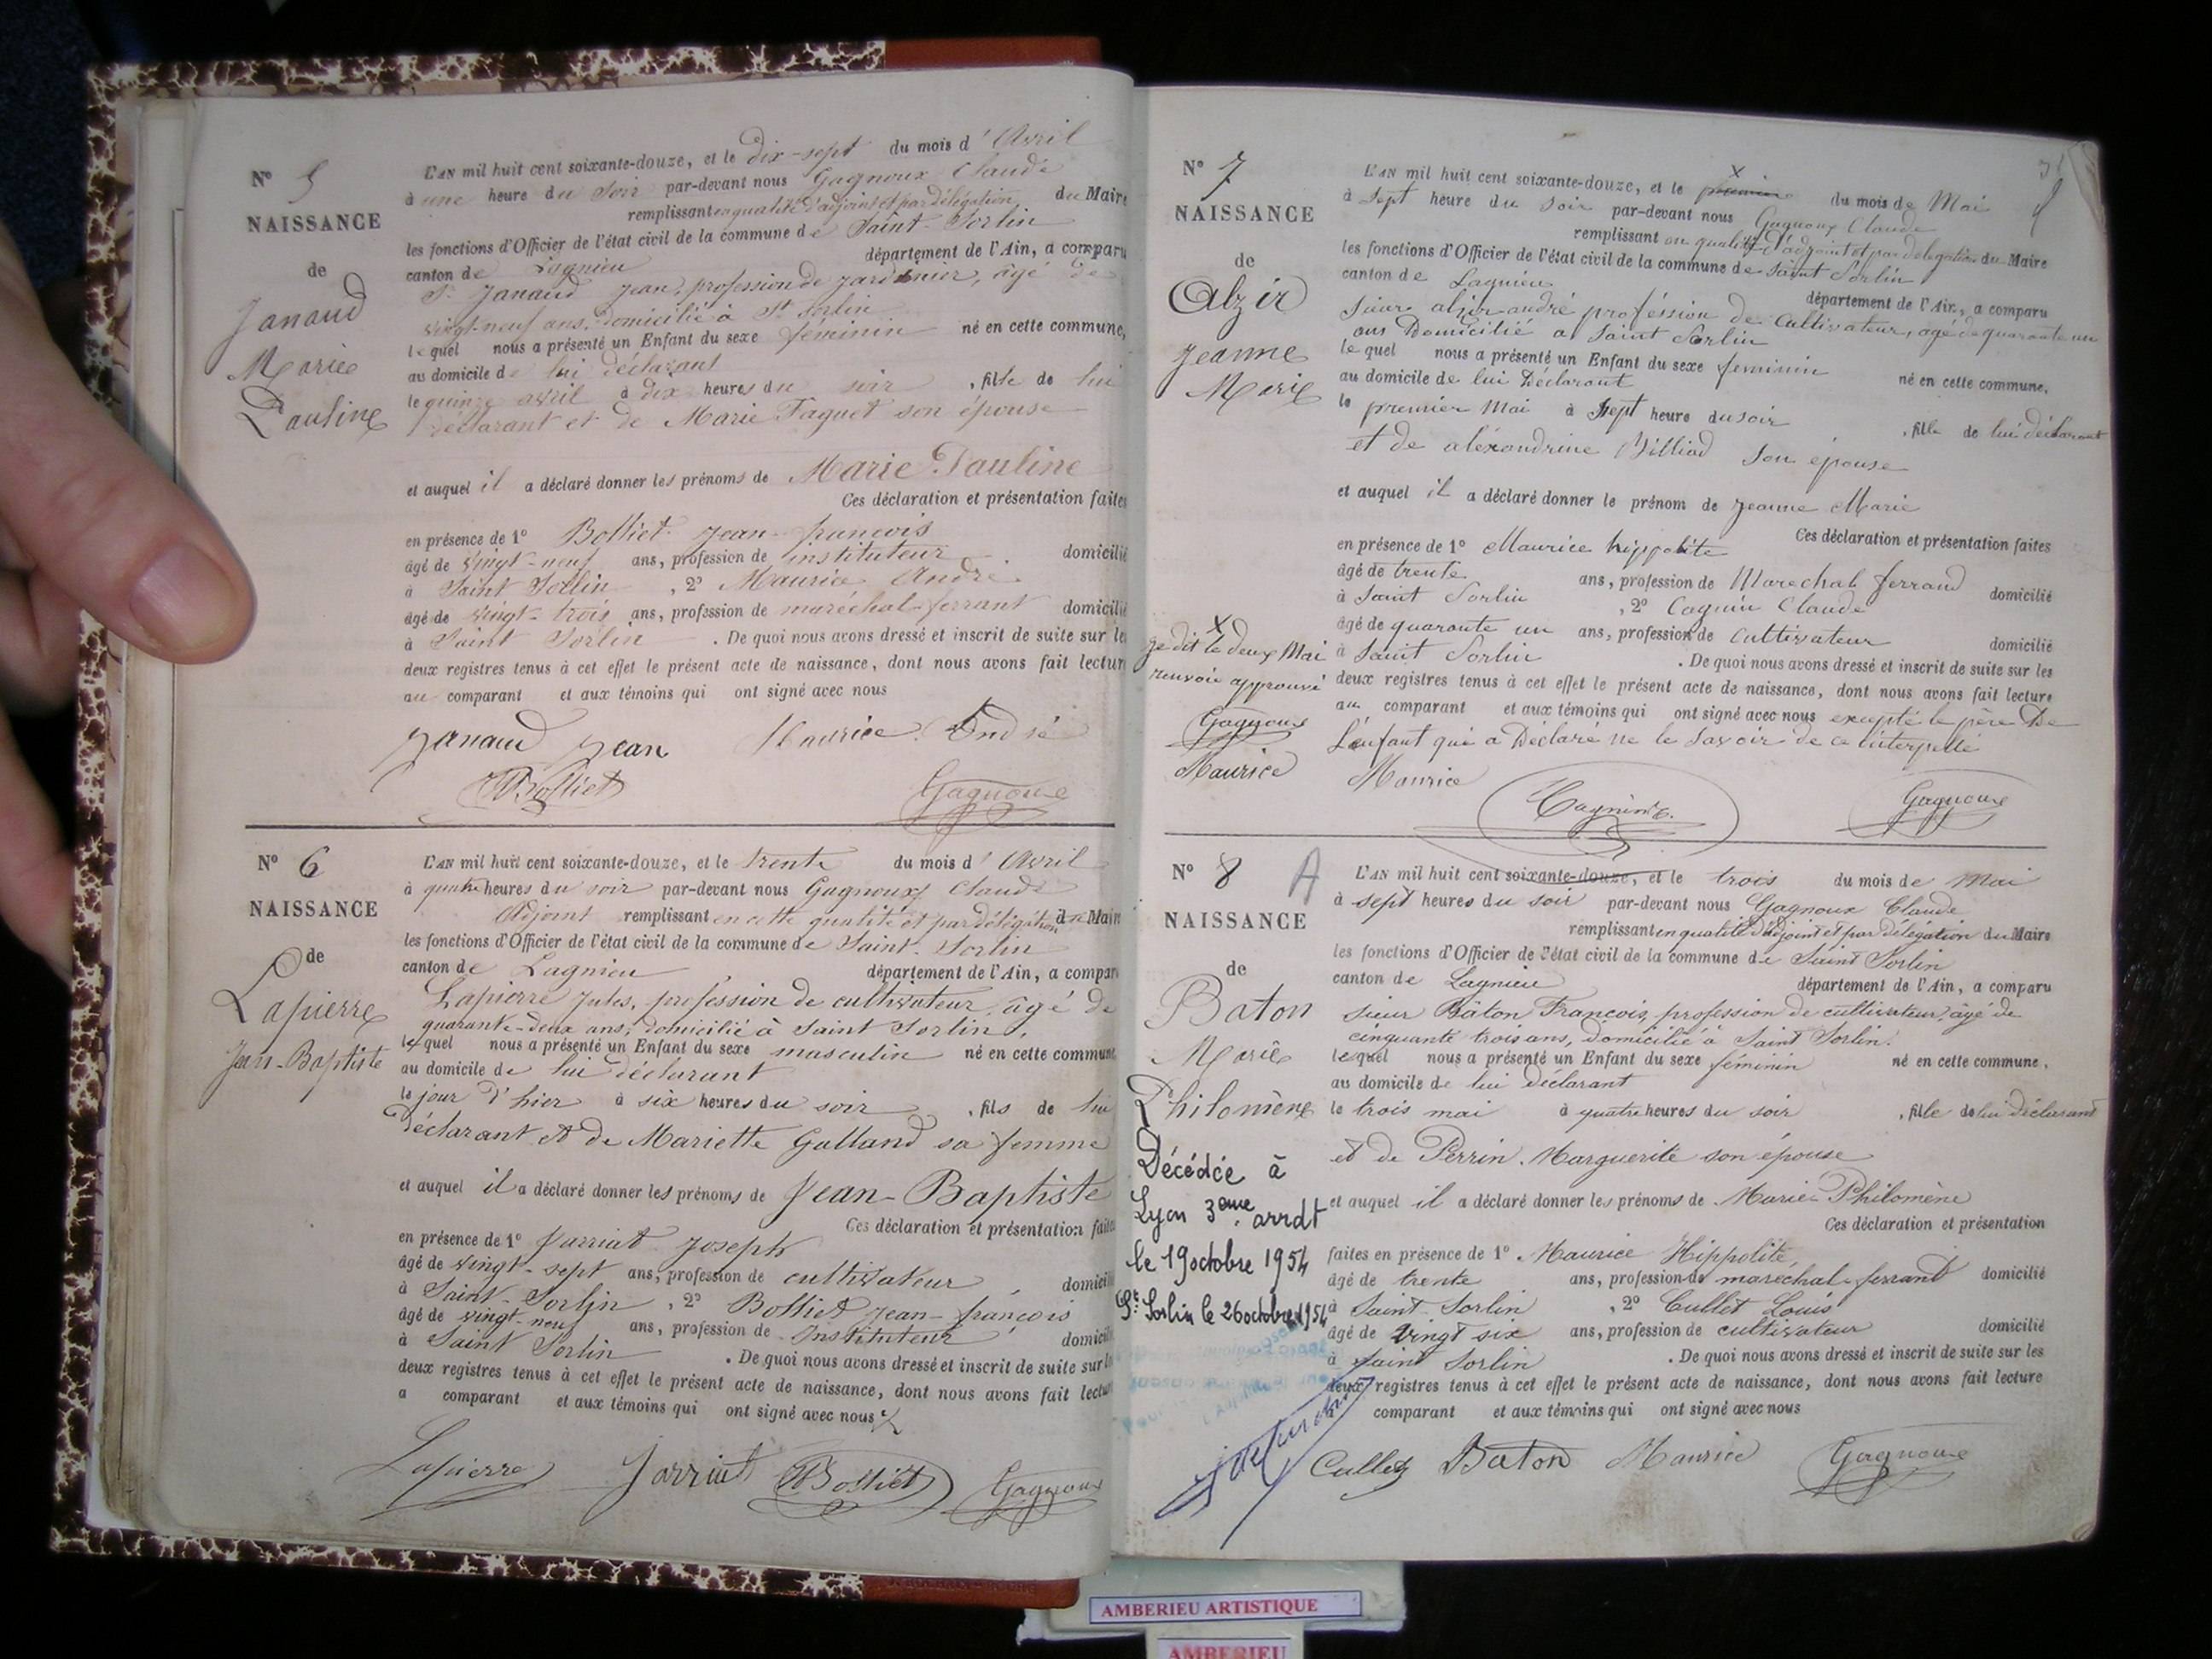 N° 5
NAISSANCE
de
Janaud
Marie
Pauline
L'AN mil huit cent soixante-douze, et le dix-sept du mois d'Avril
à une heure du Soir par-devant nous Gagnoux Claude
remplissant en qualité d'adjoint et par délégation du Maire
les fonctions d'Officier de l'état civil de la commune de Saint-Sorlin
canton de Lagnieu département de l'Ain, a comparu
Sr Janaud Jean, profession de jardinier, âgé de
vingt-neuf ans, domicilié à St Sorlin
lequel nous a présenté un Enfant du sexe féminin né en cette commune,
au domicile de lui déclarant
le quinze avril à dix heures du soir, fille de lui
déclarant et de Marie Faguet son épouse
et auquel il a déclaré donner les prénoms de Marie Pauline
Ces déclaration et présentation faites
en présence de 1° Bolliet Jean-françois
âgé de vingt-neuf ans, profession de instituteur domicilié
à Saint Sorlin, 2° Maurice André
âgé de vingt-trois ans, profession de maréchal-ferrant domicilié
à Saint Sorlin. De quoi nous avons dressé et inscrit de suite sur les
deux registres tenus à cet effet le présent acte de naissance, dont nous avons fait lectur
au comparant et aux témoins qui ont signé avec nous
Janaud Jean Maurice André
Bolliet Gagnoux
N° 6
NAISSANCE
de
Lapierre
Jean-Baptiste
L'AN mil huit cent soixante-douze, et le trente du mois d'Avril
à quatre heures du soir par-devant nous Gagnoux Claude
Adjoint remplissant en cette qualité et par délégation du Maire
les fonctions d'Officier de l'état civil de la commune de Saint-Sorlin
canton de Lagnieu département de l'Ain, a compar
Lapierre Jules, profession de cultivateur, âgé de
quarante-deux ans, domicilié à Saint Sorlin,
lequel nous a présenté un Enfant du sexe masculin né en cette commune
au domicile de lui déclarant
le jour d'hier à six heures du soir, fils de lui
déclarant et de Mariette Galland sa femme
et auquel il a déclaré donner les prénoms de Jean-Baptiste
Ces déclaration et présentation faites
en présence de 1° Jarriat Joseph
âgé de vingt-sept ans, profession de cultivateur, domicili
à Saint-Sorlin, 2° Bolliet Jean-françois
âgé de vingt-neuf ans, profession de Instituteur domicili
à Saint Sorlin. De quoi nous avons dressé et inscrit de suite sur le
deux registres tenus à cet effet le présent acte de naissance, dont nous avons fait lectu
a comparant et aux témoins qui ont signé avec nous
Lapierre Jarriat Bolliet Gagnoux
N° 7
NAISSANCE
de
Alzir
Jeanne
Marie
L'AN mil huit cent soixante-douze, et le premier du mois de Mai
à Sept heure du Soir par-devant nous Gagnoux Claude
remplissant en qualité d'adjoint et par délégation du Maire
les fonctions d'Officier de l'état civil de la commune de Saint Sorlin
canton de Lagnieu département de l'Ain, a comparu
Sieur alzir andré profession de Cultivateur, agé de quarante un
ans Domicilié a Saint Sorlin
lequel nous a présenté un Enfant du sexe feminin né en cette commune.
au domicile de lui Déclarant
le premier Mai à Sept heure du soir, fille de lui déclarant
et de aléxandrine Billiod Son épouse
et auquel il a déclaré donner le prénom de Jeanne Marie
Ces déclaration et présentation faites
en présence de 1° Maurice hippolite
âgé de trente ans, profession de Marechal ferrand domicilié
à Saint Sorlin, 2° Cagnin Claude
âgé de quarante un ans, profession de Cultivateur domicilié
à Saint Sorlin. De quoi nous avons dressé et inscrit de suite sur les
deux registres tenus à cet effet le présent acte de naissance, dont nous avons fait lecture
au comparant et aux témoins qui ont signé avec nous excepté le père De
L'enfant qui a Déclaré ne le Savoir de ce interpellé
X
je dit le deux Mai
renvoie approuvé
Gagnoux
Maurice
Maurice Cagnin C. Gagnoux
N° 8 A
NAISSANCE
de
Baton
Marie
Philomène
Décédée à
Lyon 3eme arrdt
le 19 octobre 1954
St Sorlin le 26 octobre 1954
L'AN mil huit cent soixante-douze, et le trois du mois de Mai
à sept heures du soir par-devant nous Gagnoux Claude
remplissant en qualité d'adjoint et par délégation du Maire
les fonctions d'Officier de l'état civil de la commune de Saint Sorlin
canton de Lagnieu département de l'Ain, a comparu
sieur Bâton François, profession de cultivateur, âgé de
cinquante trois ans, domicilié à Saint Sorlin.
lequel nous a présenté un Enfant du sexe féminin né en cette commune.
au domicile de lui déclarant
le trois mai à quatre heures du soir, fille de lui déclarant
et de Perrin Marguerite son épouse
et auquel il a déclaré donner les prénoms de Marie-Philomène
Ces déclaration et présentation
faites en présence de 1° Maurice Hippolite,
âgé de trente ans, profession de maréchal-ferrant domicilié
à Saint-Sorlin, 2° Cullet Louis
âgé de vingt six ans, profession de cultivateur domicilié
à Saint Sorlin. De quoi nous avons dressé et inscrit de suite sur les
deux registres tenus à cet effet le présent acte de naissance, dont nous avons fait lecture
comparant et aux témoins qui ont signé avec nous
Cullet Baton Maurice Gagnoux
AMBERIEU ARTISTIQUE
AMBERIEU